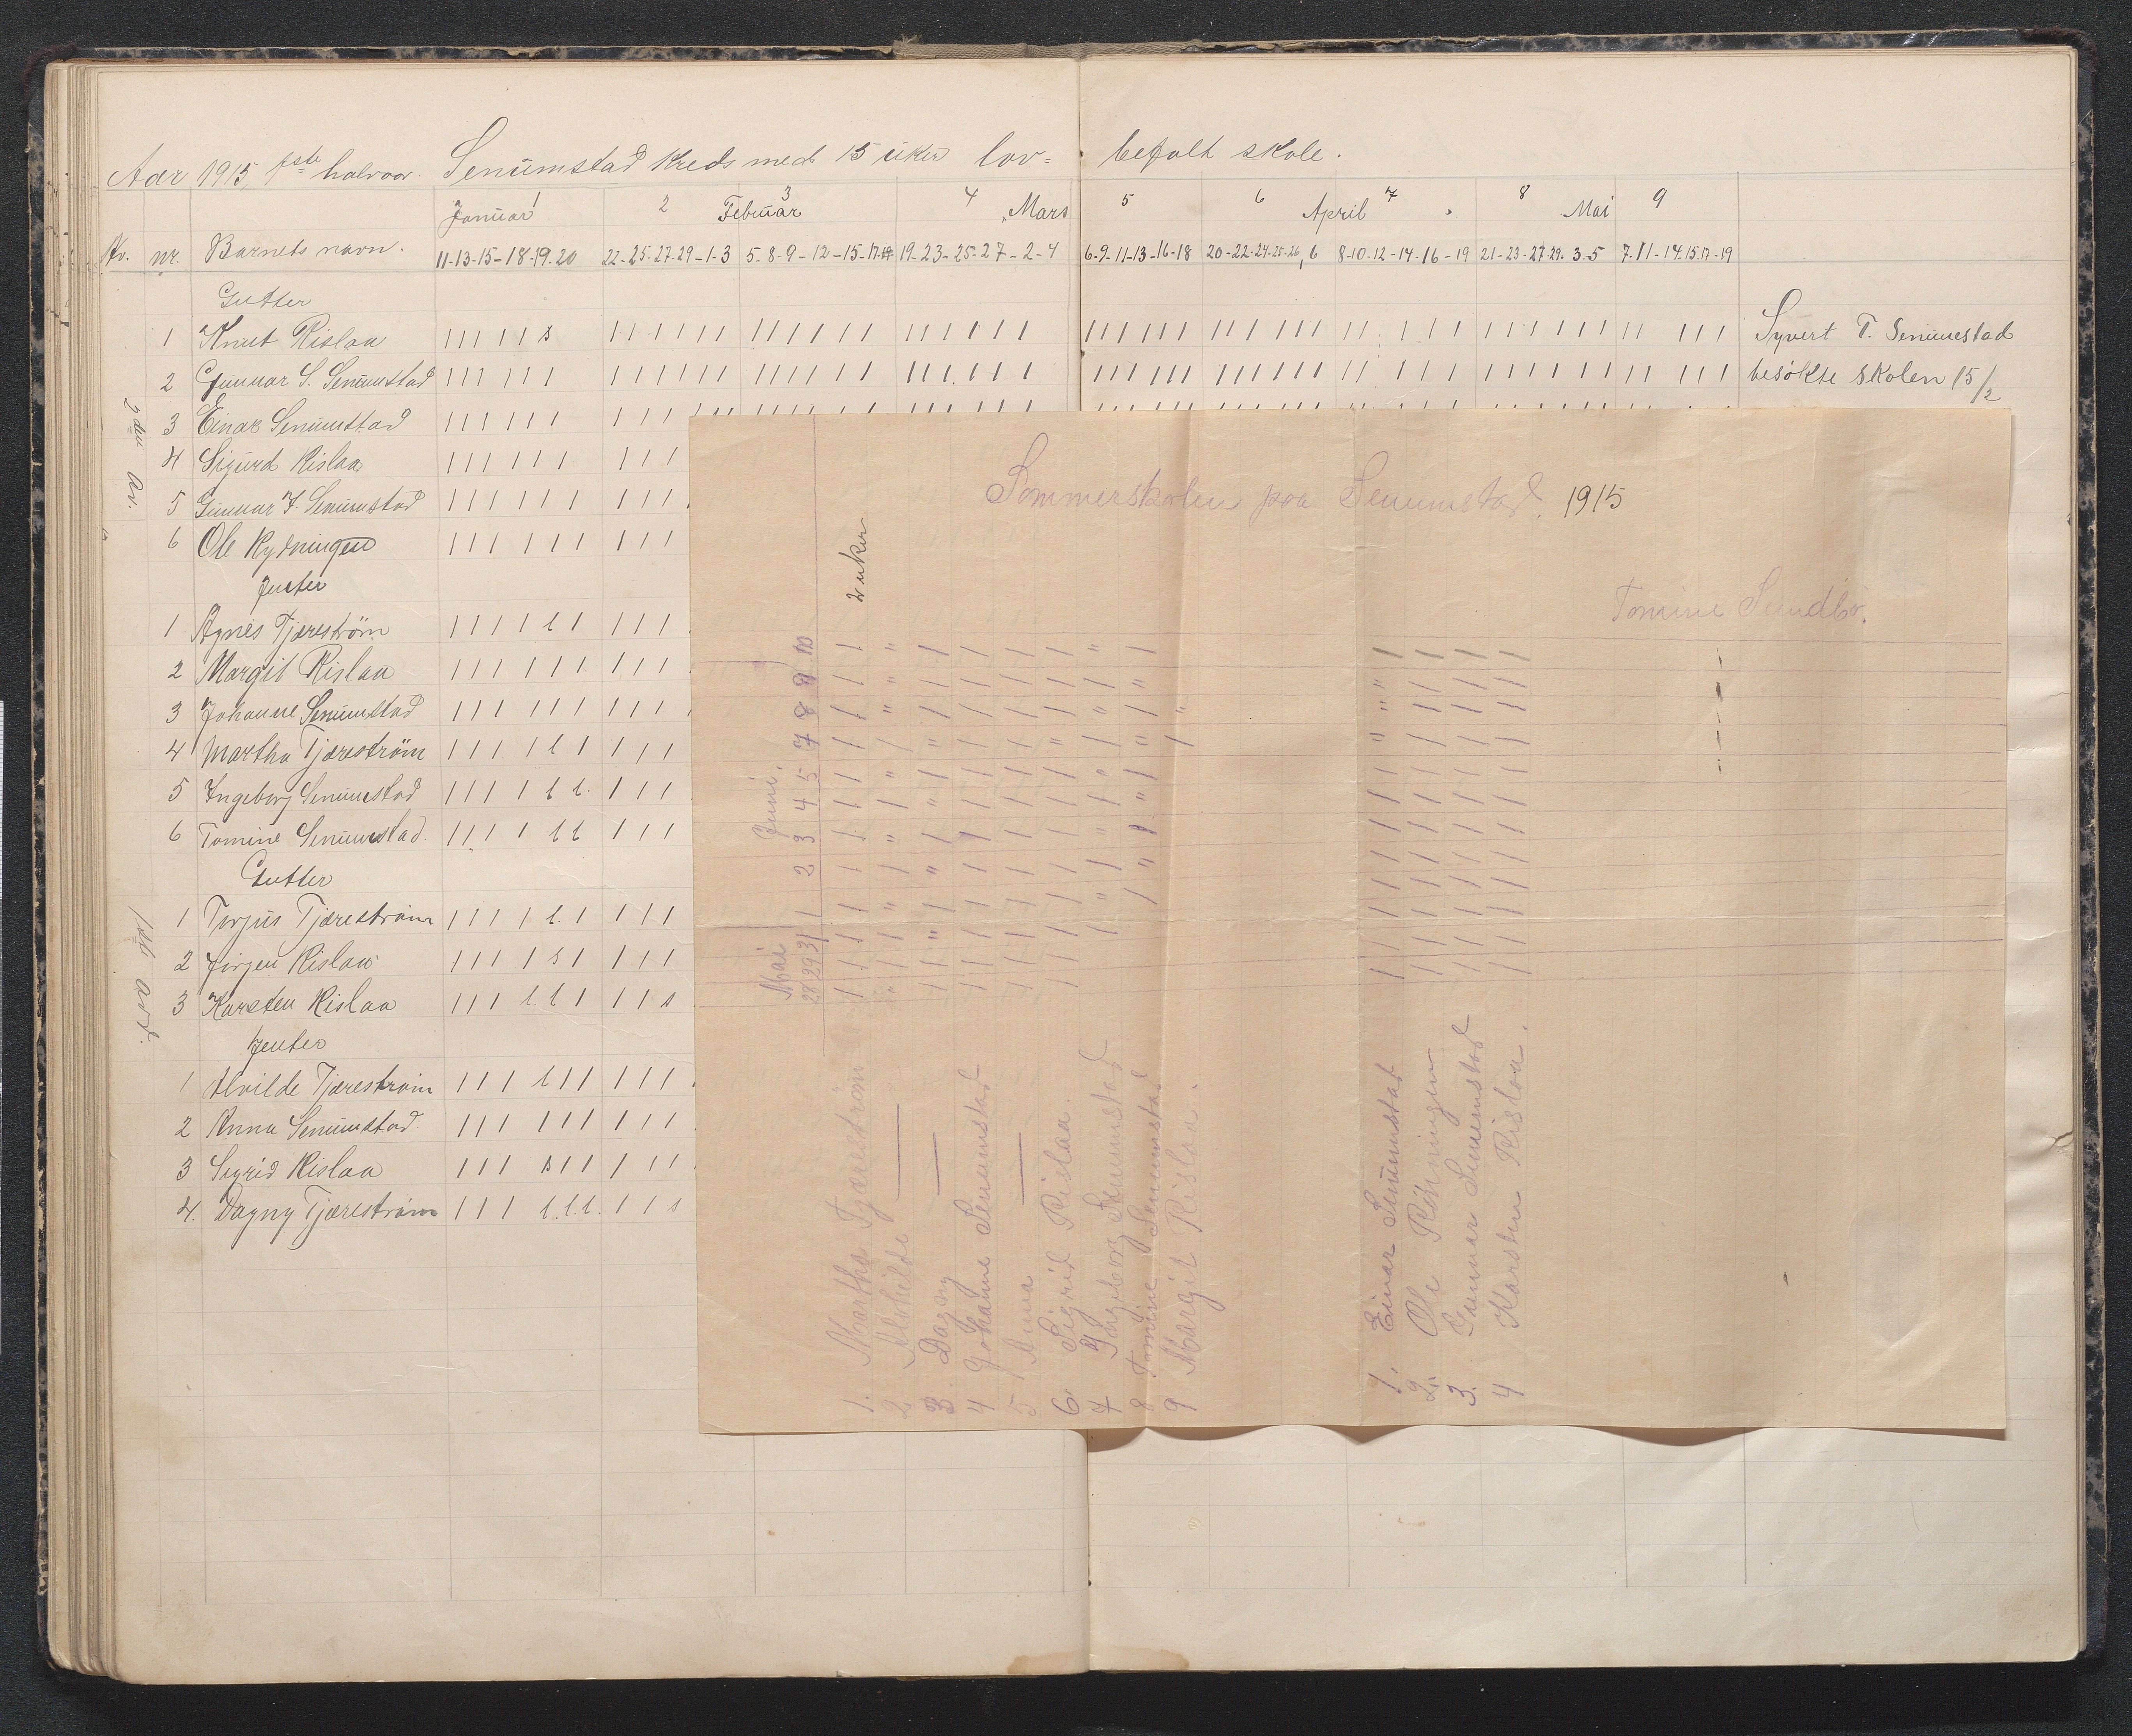 Aar 1915, 1ste halvaar. Senumstad Kreds med 15 uker lov= befalt skole.
1 2 3 4 5 6 7 8 9
Januar Februar Mars April Mai
Av. nr. Barnets navn. 11-13-15-18-19-20 22-25-27-29-1-3 5-8-9-12-15-17-19 19-23-25-27-2-4 6-9-11-13-16-18 20-22-24-25-26, 6 8-10-12-14-16-19 21-23-27-29-3-5 7-11-14-15-17-19
Gutter
1 Knut Rislaa
Syvert T. Senumstad
2 Gunnar S. Senumstad
besøkte skolen 15/2
2den av.
3 Einar Senumstad
4 Sigurd Rislaa
5 Gunnar J. Senumstad
6 Ole Rydningen
Jenter
1 Agnes Tjærestrøm
2 Margit Rislaa
3 Johanne Senumstad
4 Martha Tjærestrøm
5 Ingeborg Senumstad
6 Tomine Senumstad
Gutter
1ste avd.
1 Torjus Tjærestrøm
2 Jörgen Rislaa
3 Karsten Rislaa
Jenter
1 Alvilde Tjærestrøm
2 Anna Senumstad
3 Sigrid Rislaa
4. Dagny Tjærestrøm
Sommerskolen paa Senumstad. 1915
Tomine Sundbö.
2 uker
Mai Juni.
28 29 31 1 2 3 4 5 7 8 9 10
1. Martha Tjærestrøm
2 Alvhilde —
3 Dagny —
4 Johanne Senumstad
5 Anna —
6 Sigrid Rislaa.
7 Ingeborg Senumstad
8 Tomine Senumstad
9 Margit Rislaa.
1. Einar Senumstad
2. Ole Rödningen
3. Gunnar Senumstad
4 Karsten Rislaa.